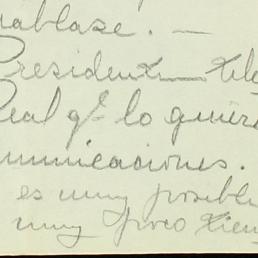 nablase. —
Presidente
Real qe lo quiera
municaciones.
es muy posible
muy poco tiem